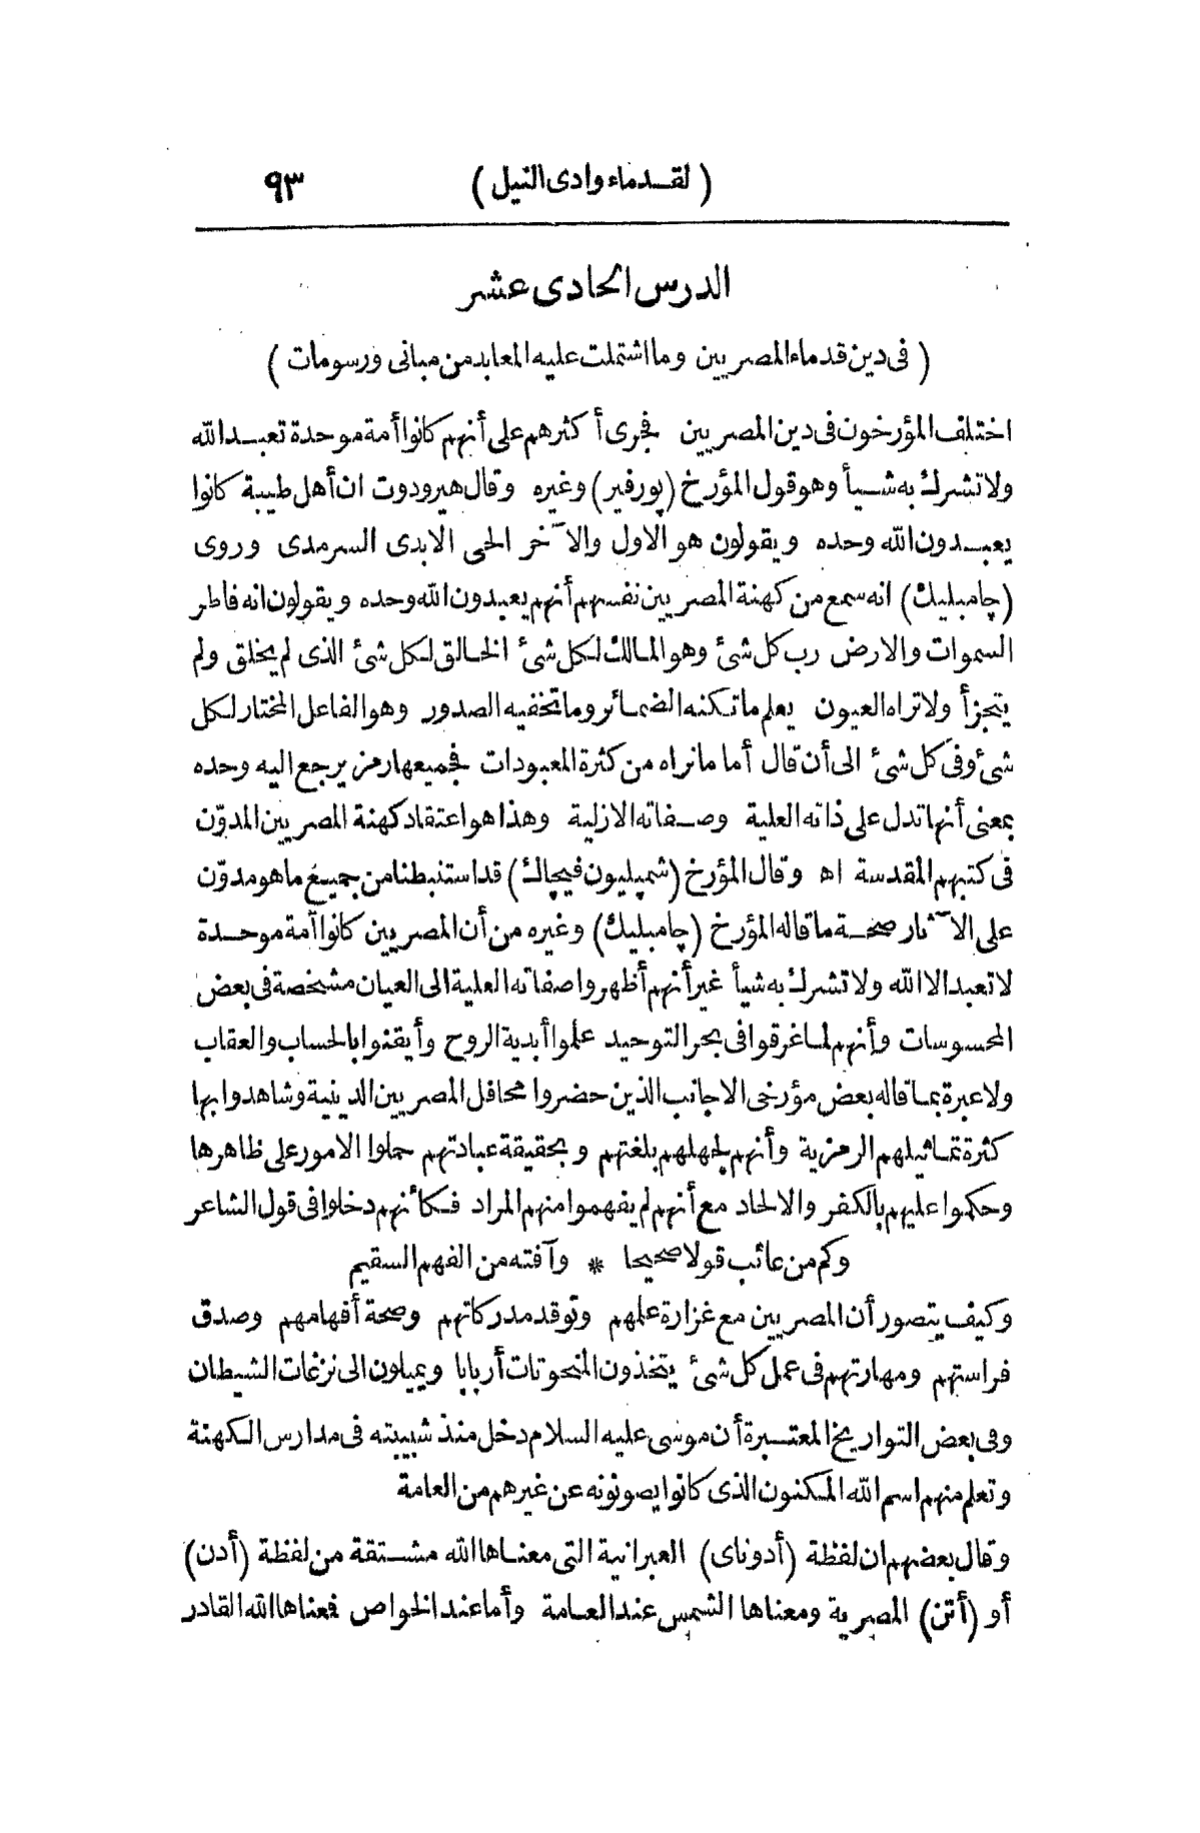 ( لقدماء وادى النيل ) ٩٣
الدرس الحادى عشر
( فى دين قدماء المصريين وما اشتملت عليه المعابد من مبانى ورسومات )
اختلف المؤرخون فى دين المصريين فجرى أكثرهم على أنهم كانوا أمة موحدة تعبد الله
ولا تشرك به شيأ وهو قول المؤرخ (پورفير) وغيره وقال هيرودوت ان أهل طيبة كانوا
يعبدون الله وحده ويقولون هو الاول والآخر الحى الابدى السرمدى وروى
(چامبليك) انه سمع من كهنة المصريين نفسهم أنهم يعبدون الله وحده ويقولون انه فاطر
السموات والارض رب كل شئ وهو المالك لكل شئ الخالق لكل شئ الذى لم يخلق ولم
يتجزأ ولا تراه العيون يعلم ما تكنه الضمائر وما تخفيه الصدور وهو الفاعل المختار لكل
شئ وفى كل شئ الى أن قال أما ما نراه من كثرة المعبودات فجميعها رمز يرجع اليه وحده
بمعنى أنها تدل على ذاته العلية وصفاته الازلية وهذا هو اعتقاد كهنة المصريين المدوّن
فى كتبهم المقدسة اه وقال المؤرخ (شمپليون فيچاك) قد استنبطنا من جميع ما هو مدوّن
على الآثار صحة ما قاله المؤرخ (چامبليك) وغيره من أن المصريين كانوا أمة موحدة
لا تعبد الا الله ولا تشرك به شيأ غير أنهم أظهروا صفاته العلية الى العيان مشخصة فى بعض
المحسوسات وأنهم لما غرقوا فى بحر التوحيد علموا أبدية الروح وأيقنوا بالحساب والعقاب
ولا عبرة بما قاله بعض مؤرخى الاجانب الذين حضروا محافل المصريين الدينية وشاهدوا بها
كثرة تماثيلهم الرمزية وأنهم لجهلهم بلغتهم وبحقيقة عبادتهم حملوا الامور على ظاهرها
وحكموا عليهم بالكفر والالحاد مع أنهم لم يفهموا منهم المراد فكأنهم دخلوا فى قول الشاعر
وكم من عائب قولا صحيحا * وآفته من الفهم السقيم
وكيف يتصور أن المصريين مع غزارة علمهم وتوقد مدركاتهم وصحة أفهامهم وصدق
فراستهم ومهارتهم فى عمل كل شئ يتخذون المنحوتات أربابا ويميلون الى نزغات الشيطان
وفى بعض التواريخ المعتبرة أن موسى عليه السلام دخل منذ شبيبته فى مدارس الكهنة
وتعلم منهم اسم الله المكنون الذى كانوا يصونونه عن غيرهم من العامة
وقال بعضهم ان لفظة (أدوناى) العبرانية التى معناها الله مشتقة من لفظة (أدن)
أو (أتن) المصرية ومعناها الشمس عند العامة وأما عند الخواص فمعناها الله القادر